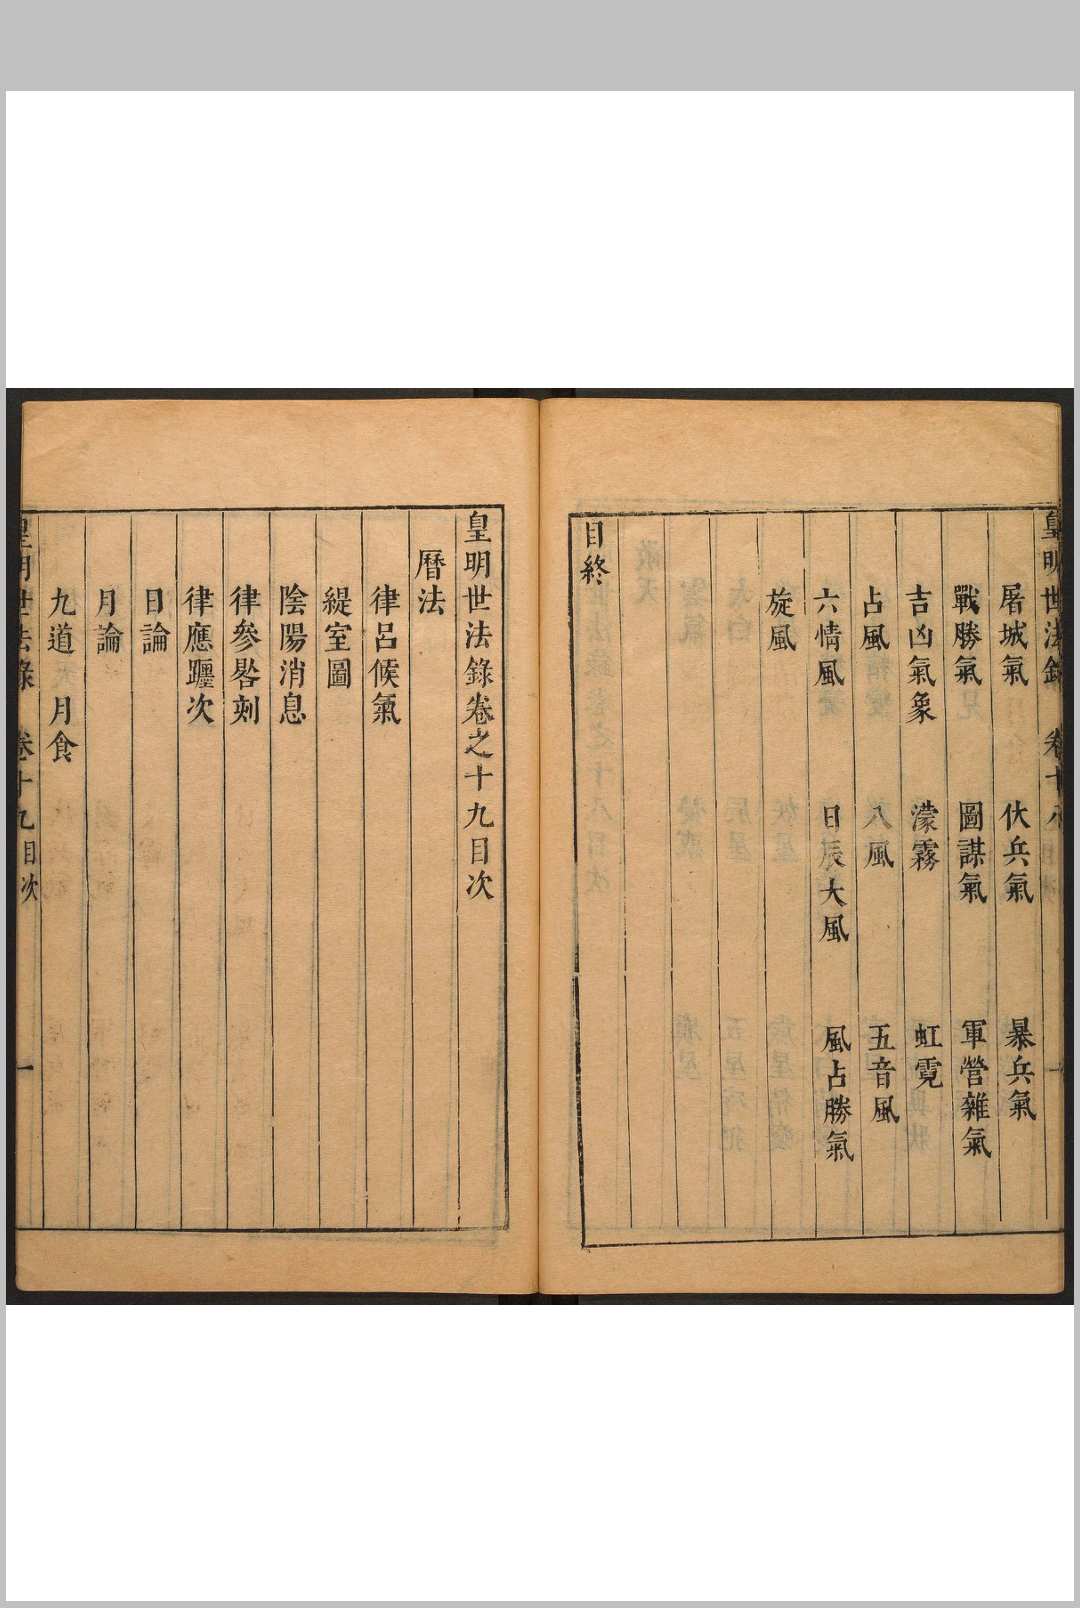 皇明世法錄 卷十八
屠城氣 伏兵氣 暴兵氣
戰勝氣 圖謀氣 軍營雜氣
吉凶氣象 濛霧 虹霓
占風 八風 五音風
六情風 日辰大風 風占勝氣
旋風
目終
皇明世法錄卷之十九目次
曆法
律呂候氣
緹室圖
陰陽消息
律參晷刻
律應躔次
日論
月論
九道 月食
皇明世法錄 卷十九目次 一